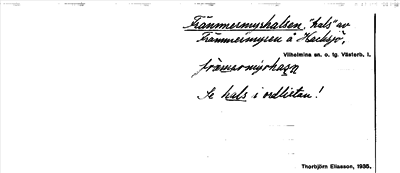 Främmermyrhalsen, "hals" av
Främmermyren å Hacksjö,
Vilhelmina sn. o. tg. Västerb. l.
Se hals i ordlistan!
Thorbjörn Eliasson, 1935.